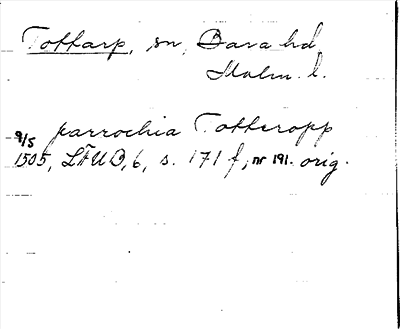 Tottarp, sn, Bara hd
Malm. l.
parrochia Totteropp
9/5
1505, LÄUB, 6, s. 171 f, nr 191. orig.